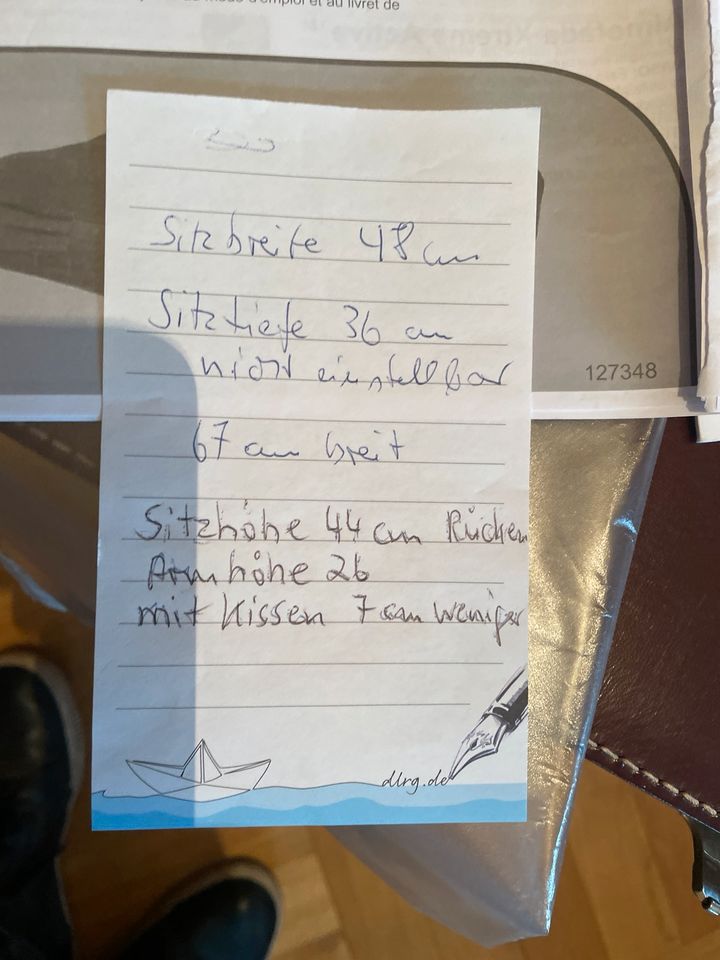 mode d'emploi et au livret de
Sitzbreite 48 cm
Sitztiefe 36 cm
nicht einstellbar
127348
67 cm breit
Sitzhöhe 44 cm Rücken
Armhöhe 26
mit Kissen 7 cm weniger
dlrg.de